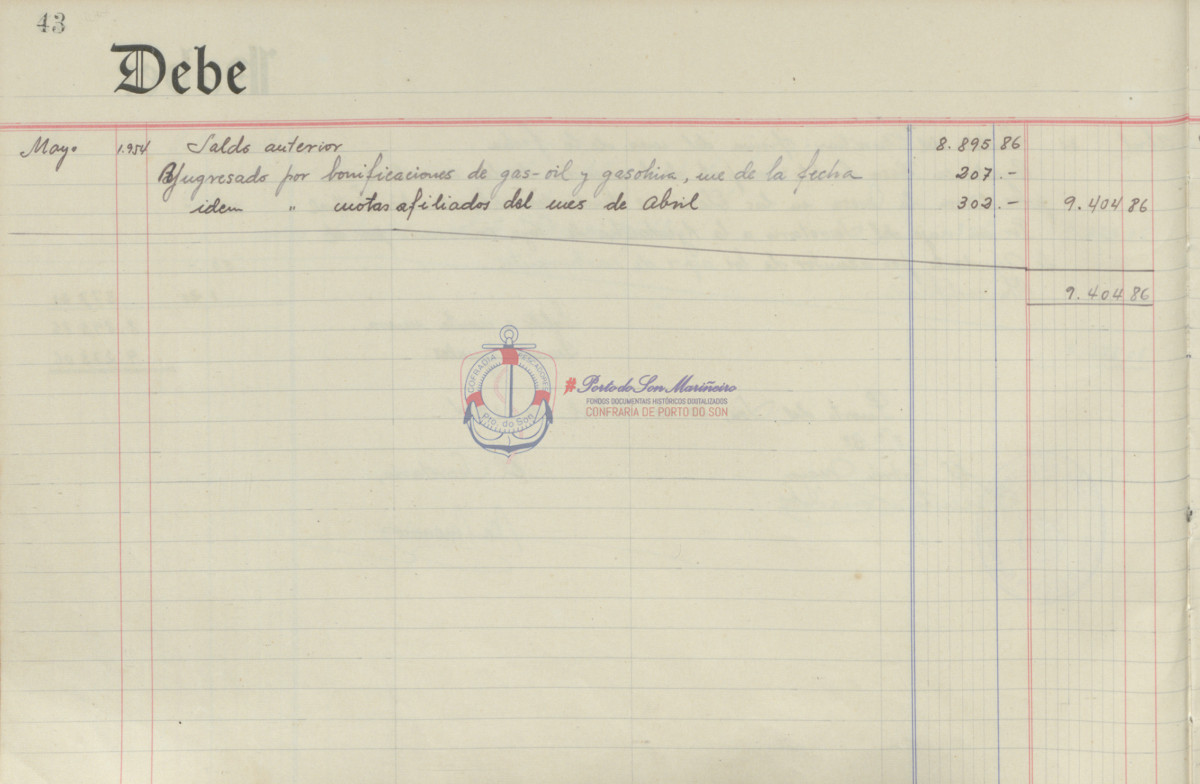 43
Debe
Mayo 1.954 Saldo anterior 8.895 86
Yngresado por bonificaciones de gas-oil y gasolina, me de la fecha 207.-
idem " cuotas afiliados del mes de Abril 302.- 9.404 86
9.404 86
COFRADIA PESCADORES
Pto. do Son
#Porto do Son Mariñeiro
FONDOS DOCUMENTAIS HISTÓRICOS DIXITALIZADOS
CONFRARÍA DE PORTO DO SON